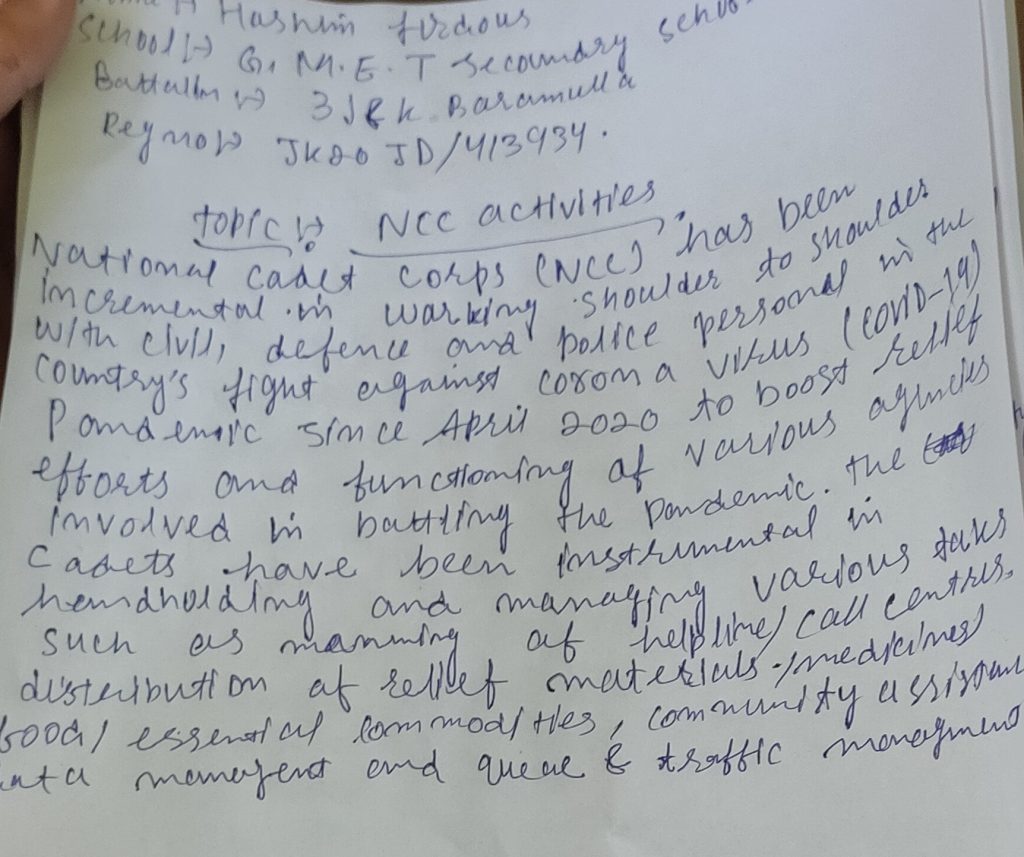 Hashim firdous
School :→ G. M.E.T Secoundary school
Battallon :→ 3 J&K Baramulla
Reg no :→ JK20 JD/413934.
topic :→ NCC activities
National cadet corps (NCC) has been
incremental in warking shoulder to shoulder
with civil, defence and police personal in the
country's fight against corona virus (covid-19)
Pandemic since April 2020 to boost relief
efforts and functioning of various agencies
involved in battling the pandemic. the
Cadets have been instrumental in
handholding and managing various taks
such as manning of helpline/call centres,
distribution of relief materials/medicines/
food/essential commodities, community assistan
ata managent and queue & traffic managment